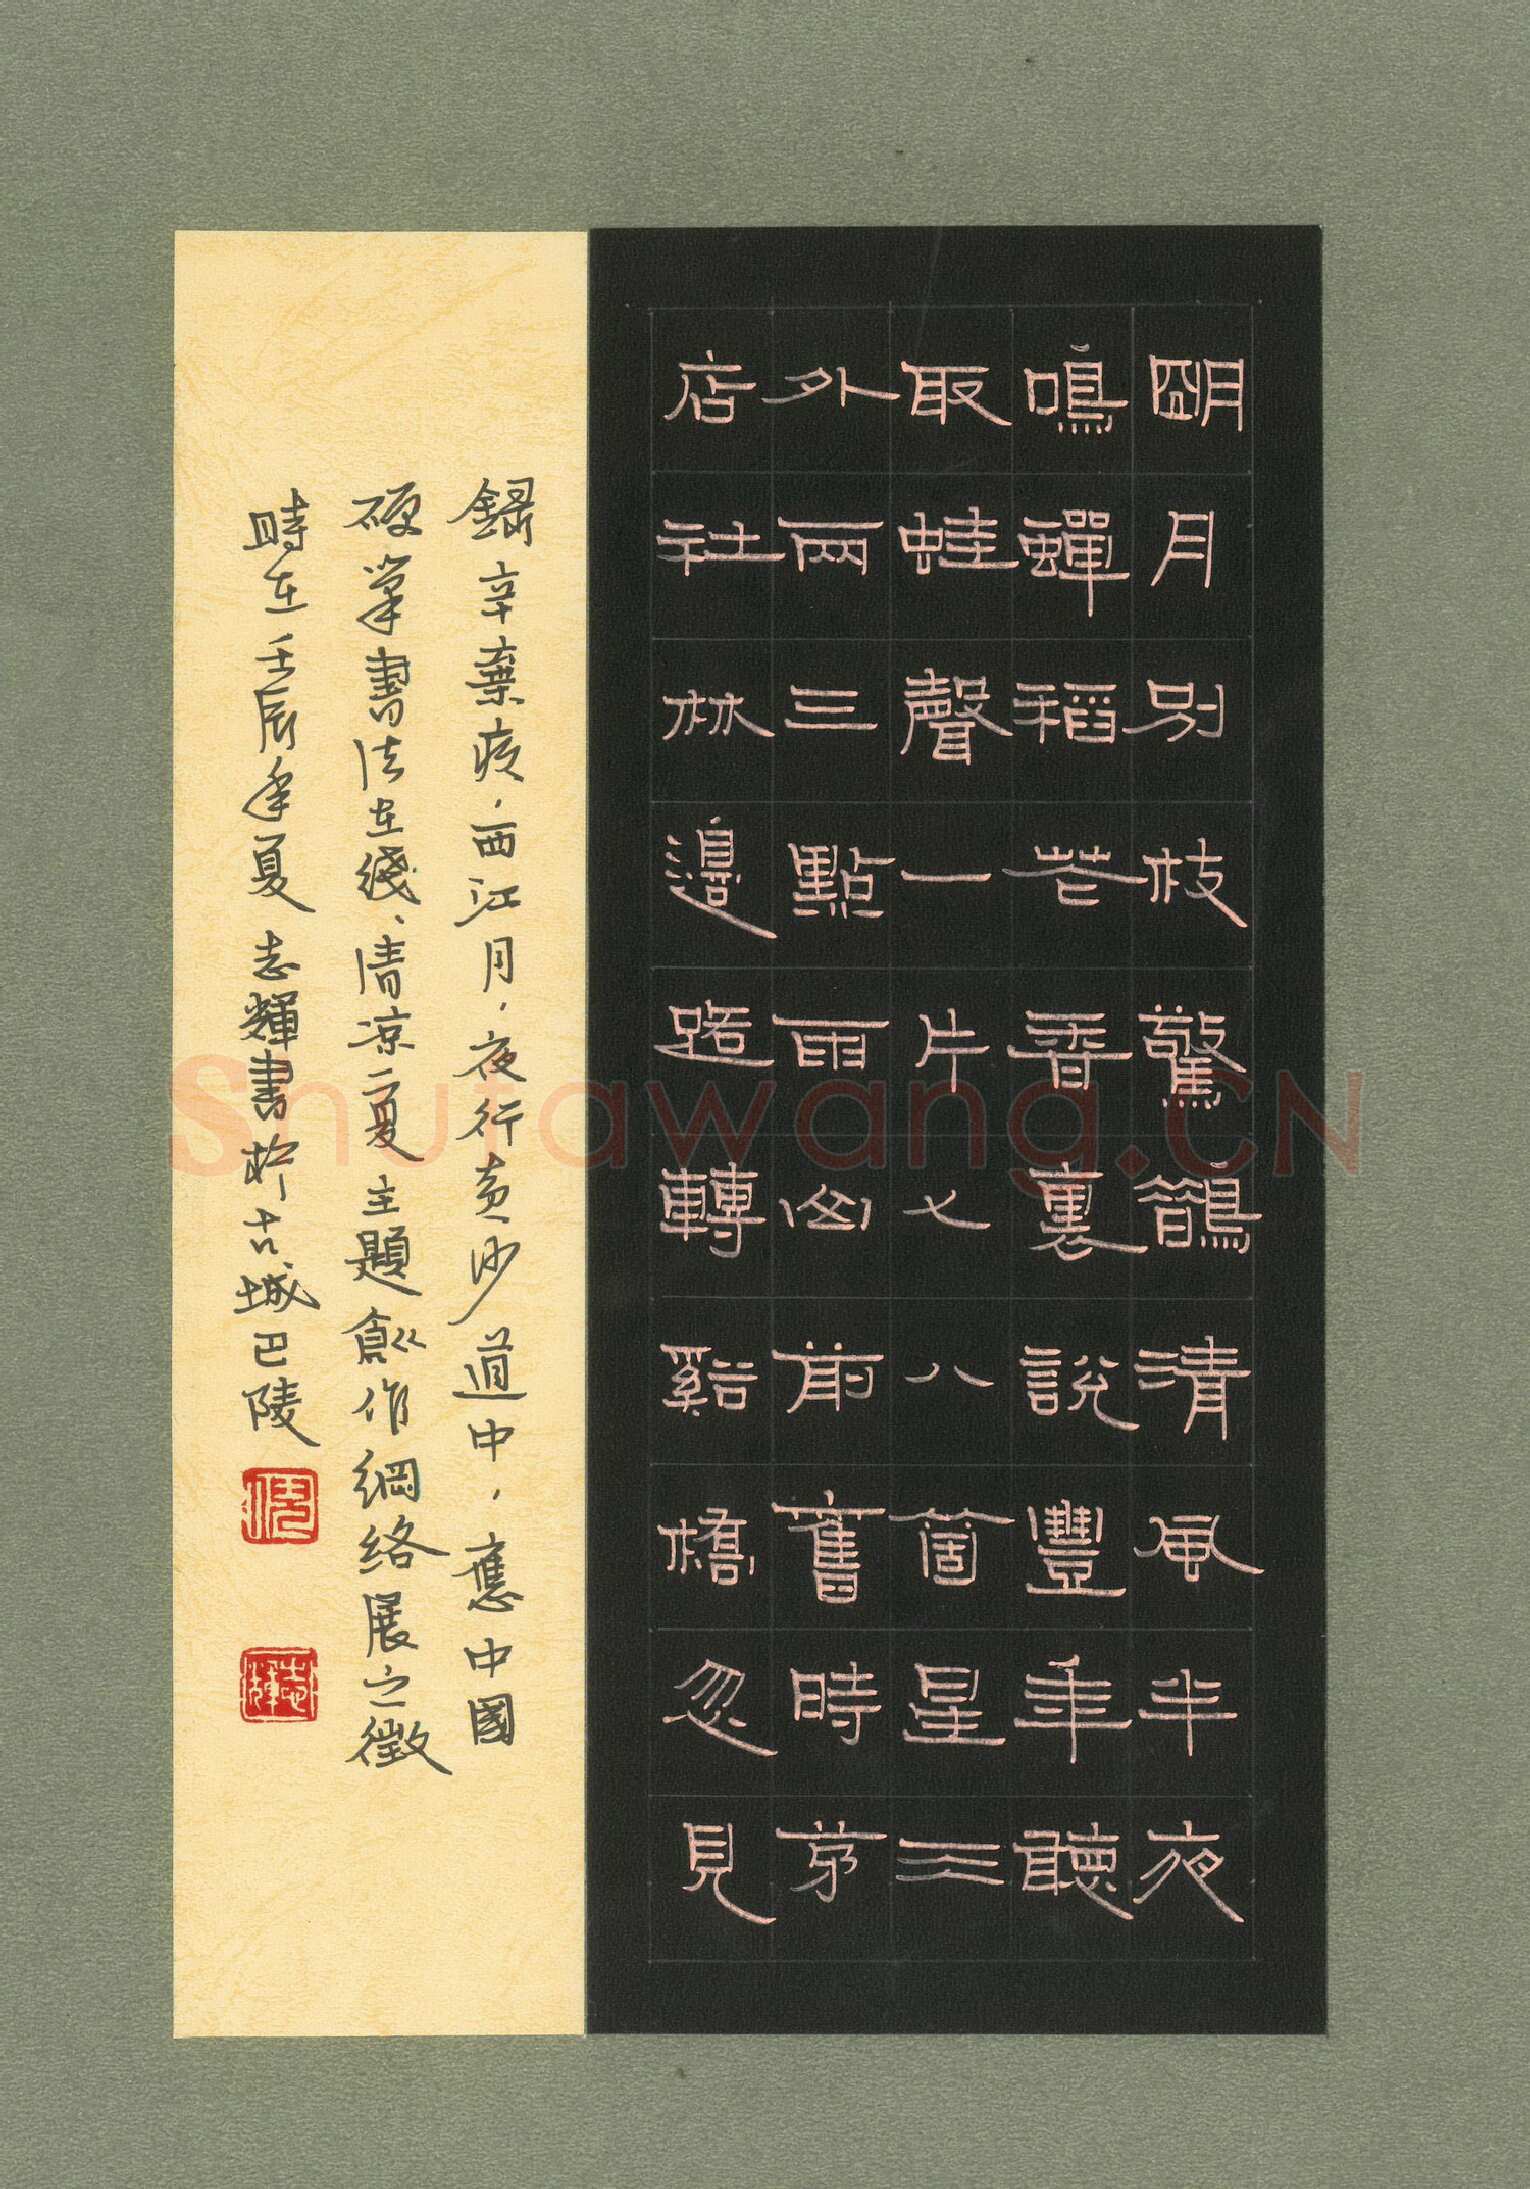 明月別枝驚鵲清風半夜
鳴蟬稻花香裏說豐年聽
取蛙聲一片七八箇星天
外兩三點雨山前舊時茅
店社林邊路轉谿橋忽見
錄辛棄疾，西江月，夜行黃沙道中，應中國
硬筆書法在綫，清凉一夏主題創作網絡展之徵
時在壬辰年夏志輝書於古城巴陵
志輝
Shufawang.CN